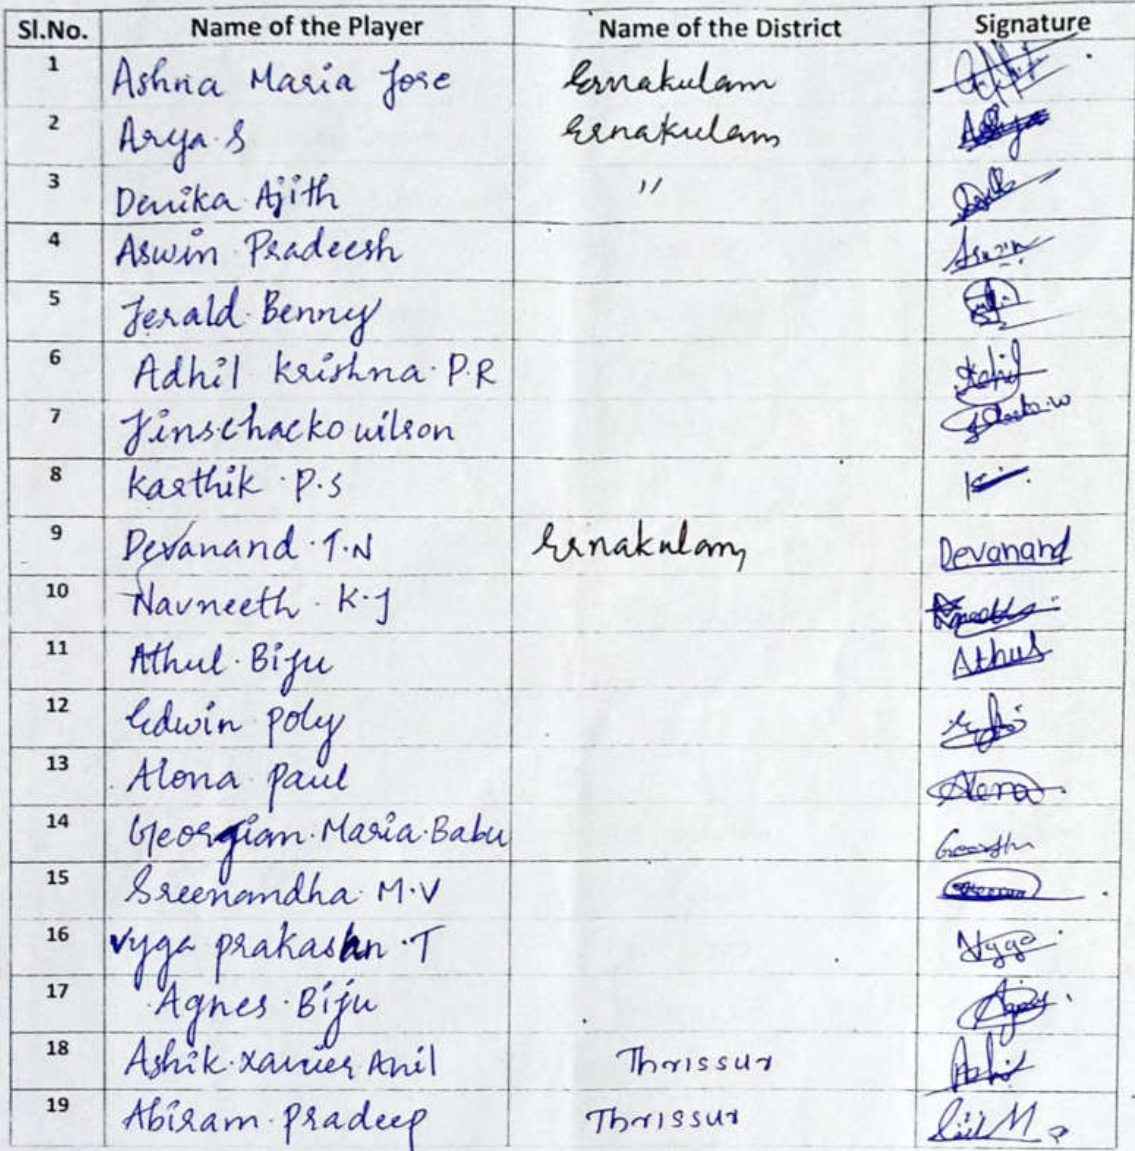 Sl.No. Name of the Player Name of the District Signature
1 Ashna Maria Jose Ernakulam
2 Arya. S Ernakulam
3 Denika Ajith "
4 Aswin Pradeesh Aswin
5 Jerald Benny
6 Adhil Krishna. P.R
7 Jinschacko wilson
8 Karthik. P.S
9 Devanand. T.N Ernakulam Devanand
10 Navneeth. K.J
11 Athul. Biju Athul
12 Edwin poly
13 Alona paul Alona
14 Georgian. Maria. Babu
15 Sreenandha. M.V
16 Vyga prakashn. T Vyga
17 Agnes. Biju Agnes
18 Ashik. Xavier Anil Thrissur
19 Abiram. Pradeep Thrissur